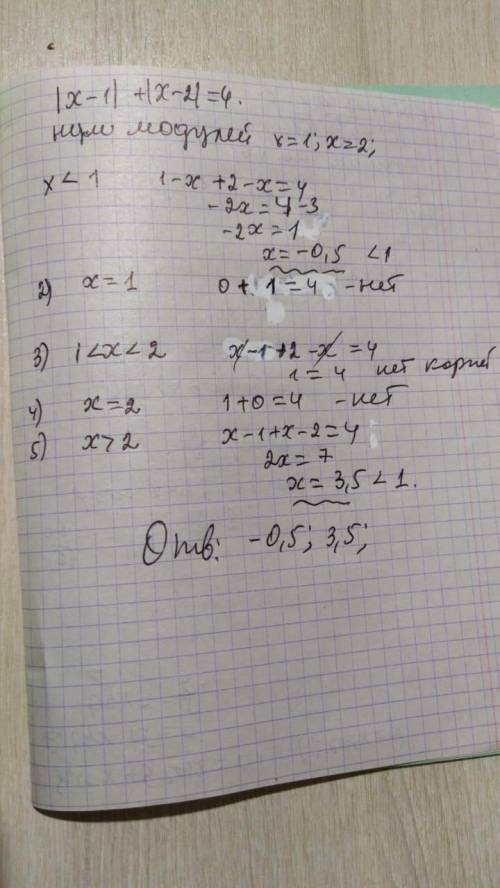 |x-1|+|x-2|=4.
нули модулей x=1; x=2;
x<1 1-x+2-x=4
-2x=4-3
-2x=1
x=-0,5 <1
2) x=1 0+1=4 -нет
3) 1<x<2 x-1+2-x=4
1=4 нет корней
4) x=2 1+0=4 -нет
5) x>2 x-1+x-2=4
2x=7
x=3,5<1.
Отв: -0,5; 3,5;